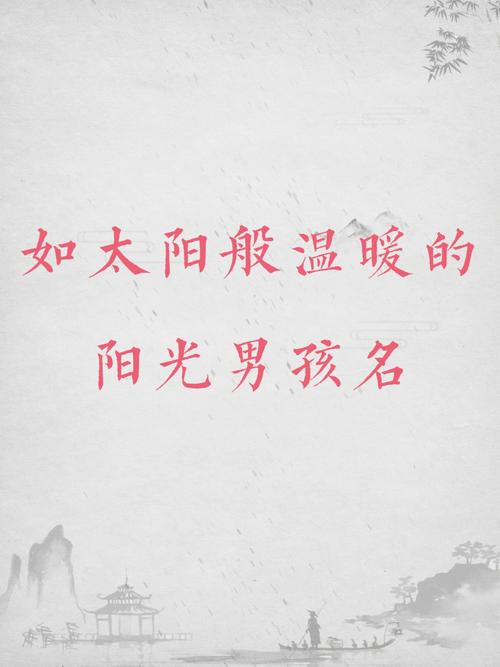 如太阳般温暖的
阳光男孩名